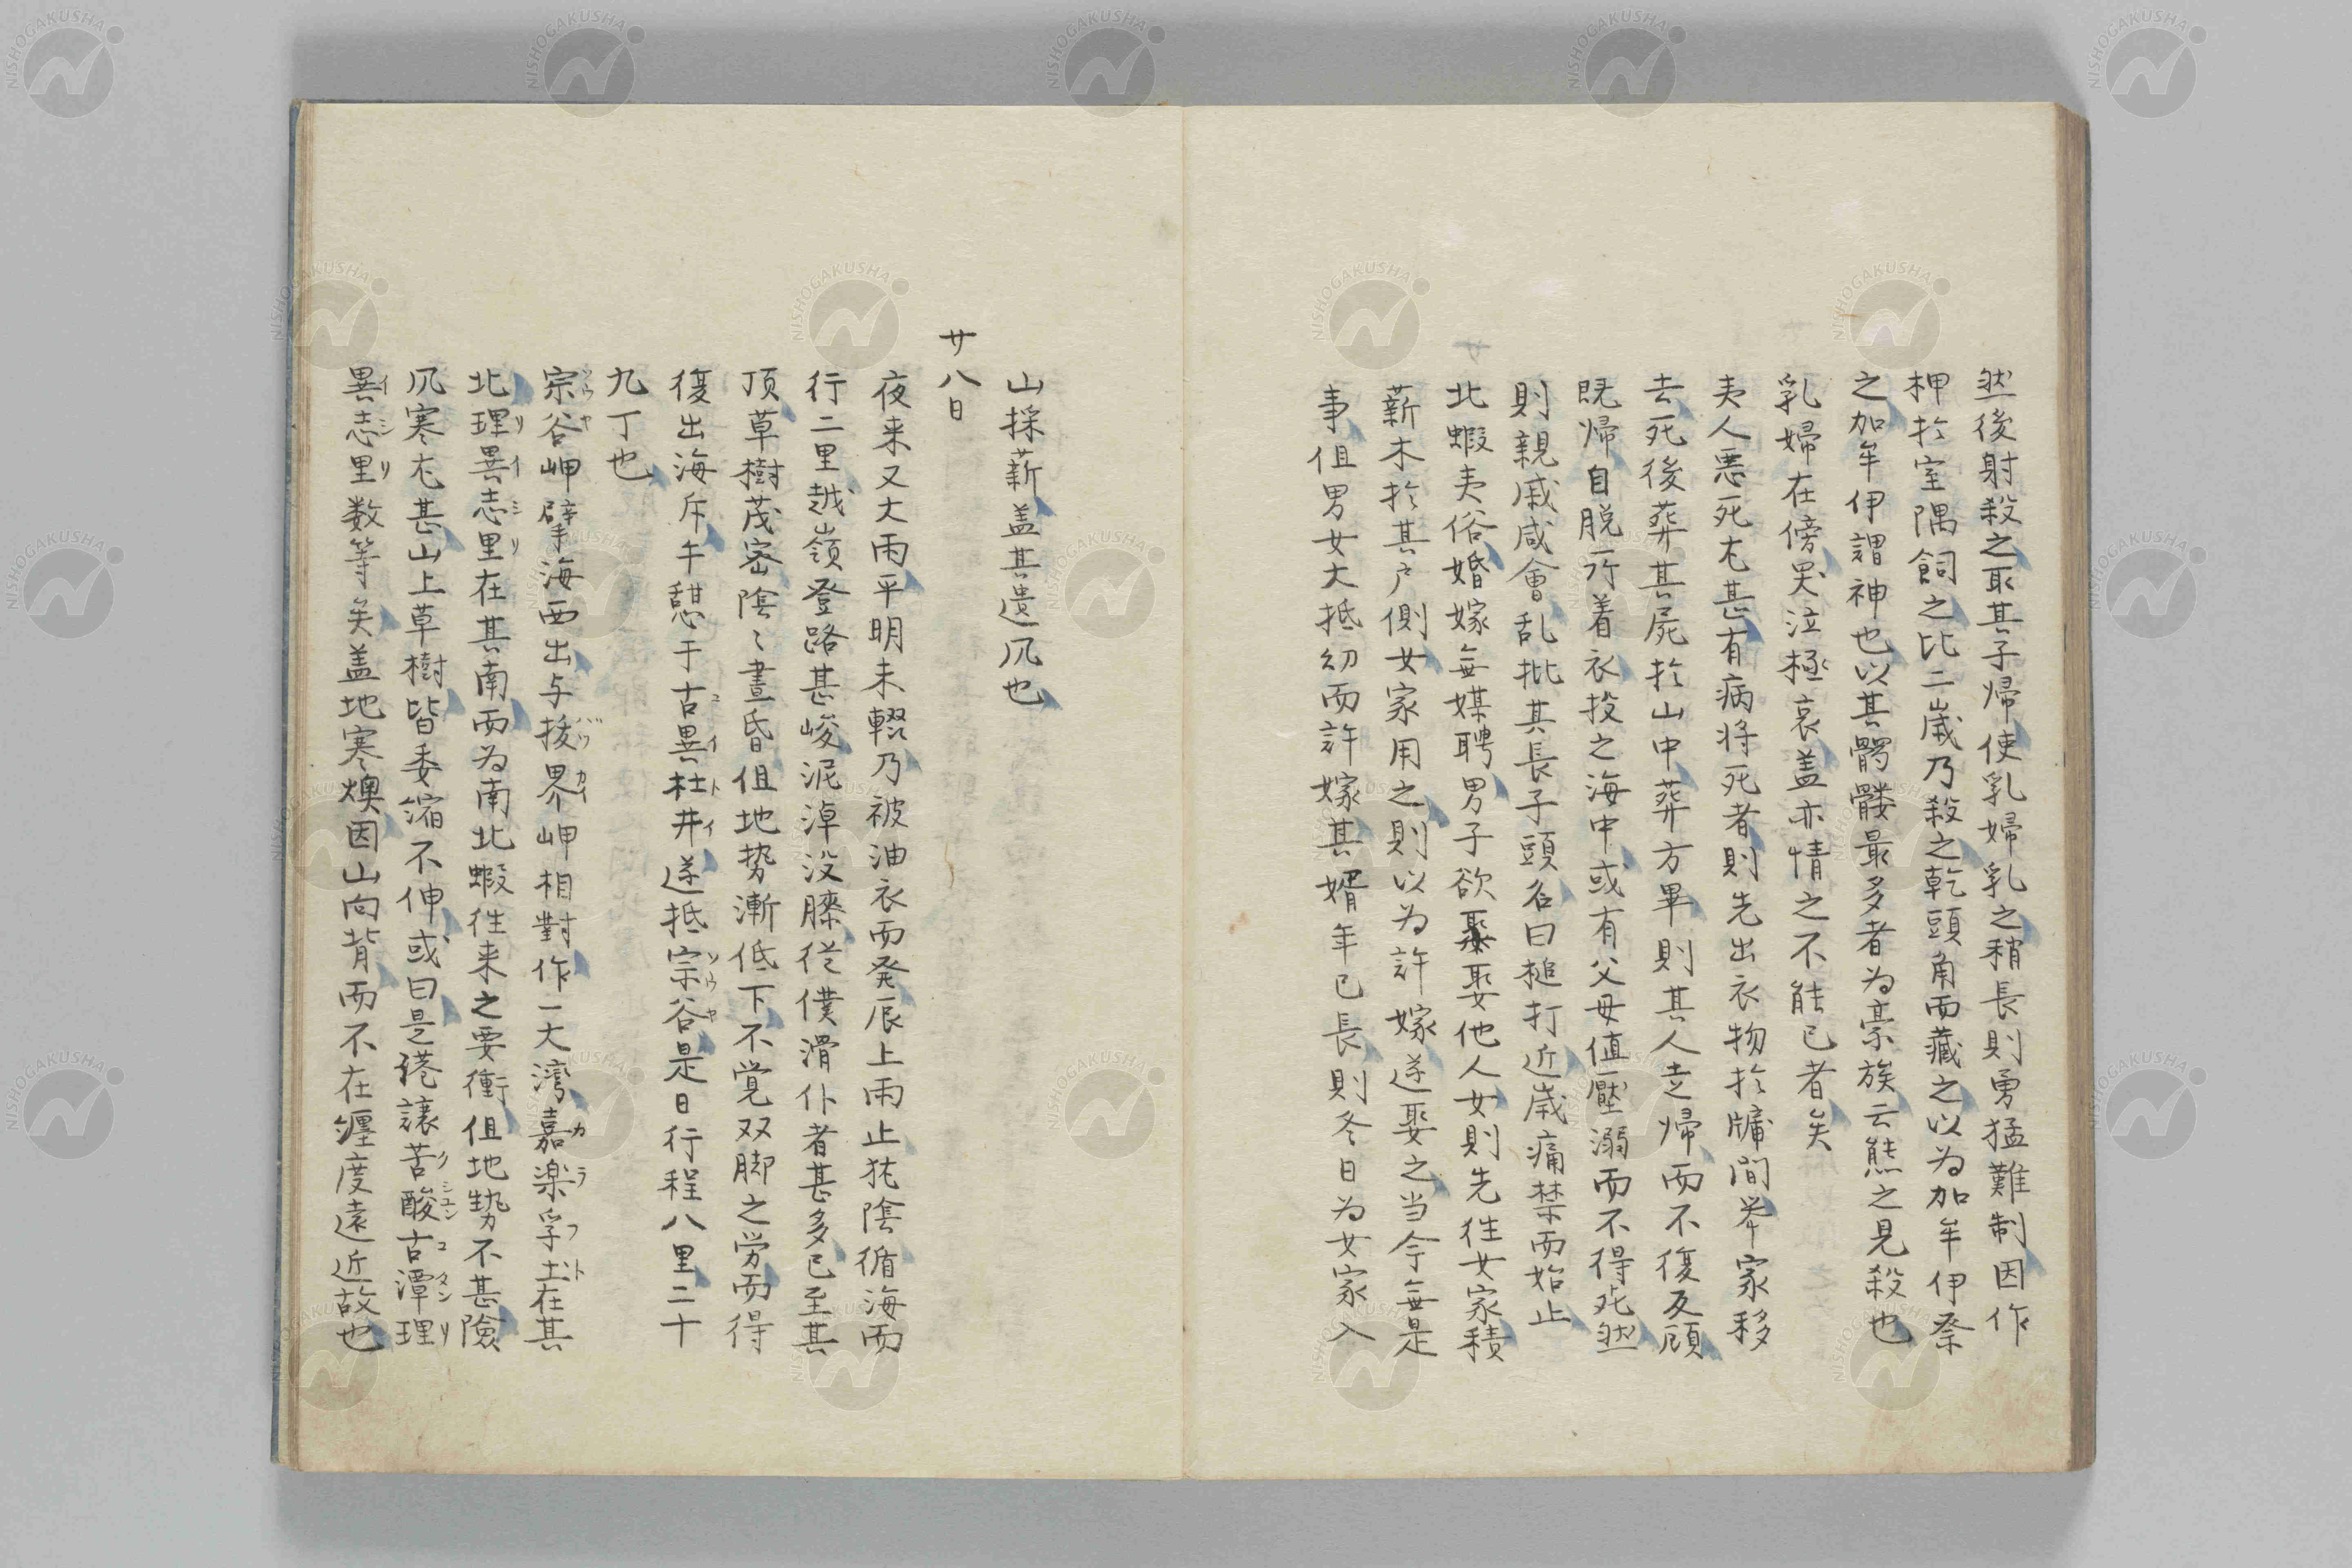 然後射殺之取其子帰使乳婦乳之稍長則勇猛難制因作
柙於室隅飼之比二歳乃殺之乾頭角而蔵之以為加牟伊祭
之加牟伊謂神也以其髑髏最多者為豪族云熊之見殺也
乳婦在傍哭泣極哀盖亦情之不能已者矣
夷人悪死尤甚有病将死者則先出衣物於牖間挙家移
去死後葬其屍於山中葬方畢則其人走帰而不復反顧
既帰自脱所着衣投之海中或有父母値壓溺而不得死然
則親戚咸會乱批其長子頭名曰槌打近歳痛禁而始止
北蝦夷俗婚嫁無媒聘男子欲娶他人女則先往女家積
薪木於其戸側女家用之則以為許嫁遂娶之当今無是
事但男女大抵幼而許嫁其婿年已長則冬日為女家入
山採薪盖其遺風也
廿八日
夜来又大雨平明未輟乃被油衣而発辰上雨止猶陰循海而
行二里越嶺登路甚峻泥淖没膝従僕滑仆者甚多已至其
頂草樹茂密陰〻晝昏但地势漸低下不覚双脚之労而得
復出海斥午憩于古異杜井遂抵宗谷是日行程八里二十
九丁也
宗谷岬擘海西出与抜界岬相對作一大湾嘉楽孚土在其
北理異志里在其南而為南北蝦往来之要衝但地勢不甚險
风寒尤甚山上草樹皆委縮不伸或曰是港譲苫酸古潭理
異志里数等矣盖地寒燠因山向背而不在纏度遠近故也
コイトイ
ソウヤ
ソウヤ
バツカイ
カラフト
リイシリ
クシユンコタン
リイシリ